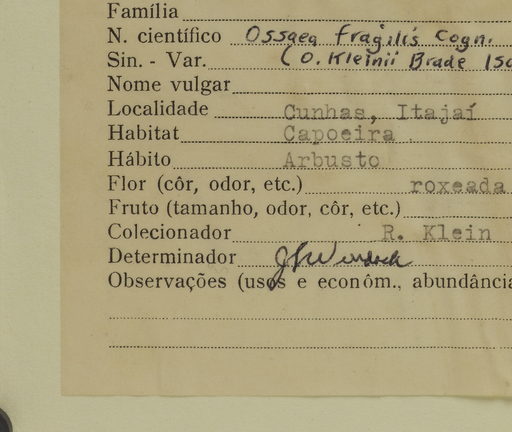 Família
N. científico Ossaea fragilis Cogn.
Sin. - Var. (O. Kleinii Brade Iso
Nome vulgar
Localidade Cunhas, Itajaí
Habitat Capoeira.
Hábito Arbusto
Flor (côr, odor, etc.) roxeada
Fruto (tamanho, odor, côr, etc.)
Colecionador R. Klein
Determinador
Observações (usos e econôm., abundância